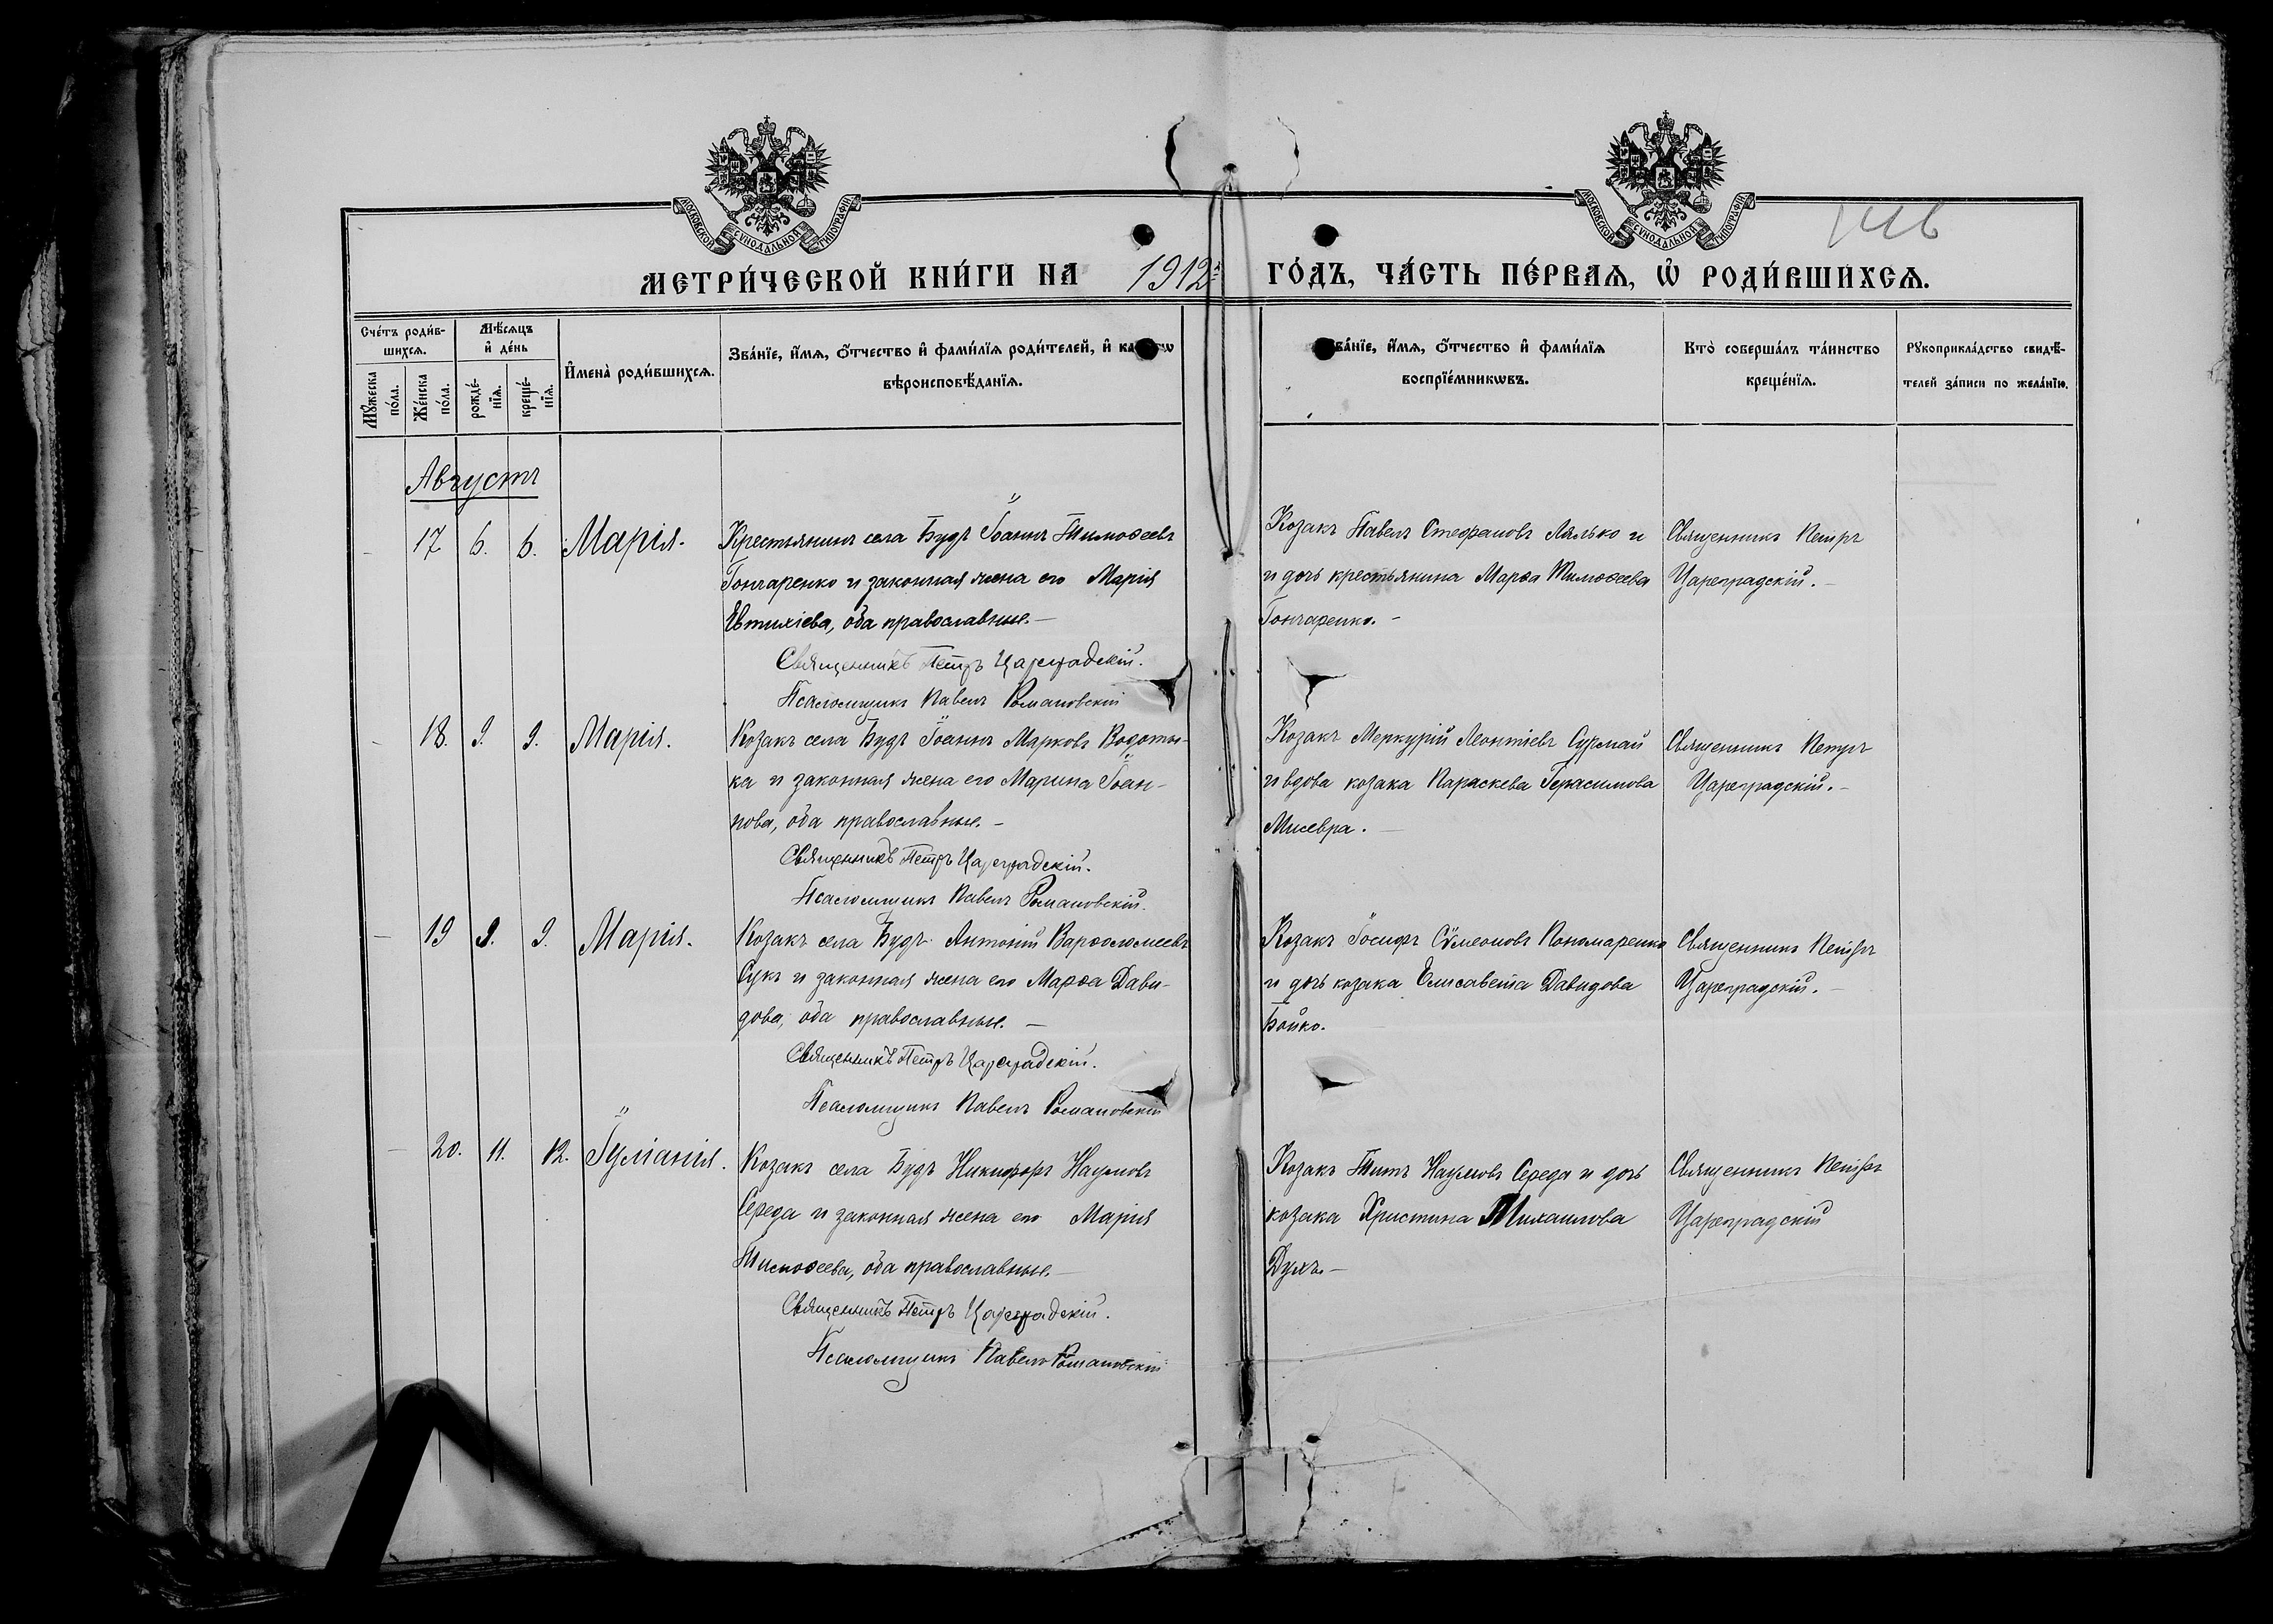 МОСКОВСКОЙ СѴНОДАЛЬНОЙ ТИПОГРАФІИ
МОСКОВСКОЙ СѴНОДАЛЬНОЙ ТИПОГРАФІИ
МЕТРИ́ЧЕСКОЙ КНИ́ГИ НА 1912й ГО́ДЪ, ЧА́СТЬ ПЕ́РВАѦ, Ѡ҆ РОДИ́ВШИХСѦ.
Сче́тъ роди́в-
шихсѧ.
Мꙋ́жеска
по́ла.
Же́нска
по́ла.
Мѣ́сѧцъ
и҆ де́нь
рожде́-
нїѧ.
креще́-
нїѧ.
И҆мена̀ роди́вшихсѧ.
Зва́нїе, и҆́мѧ, ѻ҆́тчество и҆ фами́лїѧ роди́телей, и҆
вѣроисповѣ́данїѧ.
ва́нїе, и҆́мѧ, ѻ҆́тчество и҆ фами́лїѧ
воспрїе́мникѡвъ.
Кто̀ соверша́лъ та́инство
креще́нїѧ.
Рꙋкоприкла́дство свидѣ́-
телей за́писи по жела́нїю.
Августъ
17 6. 6. Марія.
Крестьянинъ села Будъ Іоаннъ Тимоѳеевъ
Гончаренко и законная жена его Марія
Евтихіева, оба православные.—
Священникъ Петръ Цареградскій.
Псаломщикъ Павелъ Романовскій
Козакъ Павелъ Стефановъ Лялько и
и дочь крестьянина Марѳа Тимоѳеева
Гончаренко.—
Священникъ Петръ
Цареградскій.—
18. 9. 9. Марія.
Козакъ села Будъ Іоаннъ Марковъ
ка и законная жена его Марина Іоан-
нова, оба православные.—
Священникъ Петръ Цареградскій.
Псаломщикъ Павелъ Романовскій.
Козакъ Меркурій Леонтіевъ Сурмай
и вдова козака Параскева Герасимова
Мисевра.—
Священникъ Петръ
Цареградскій.—
19 9. 9. Марія.
Козакъ села Будъ Антоній Варѳоломеевъ
Сукъ и законная жена его Марѳа Дави-
дова, оба православные.—
Священникъ Петръ Цареградскій.
Псаломщикъ Павелъ Романовскій
Козакъ Іосифъ Сѵмеоновъ Пономаренко
и дочь козака Елисавета Давидова
Бойко.
Священникъ Петръ
Цареградскій.—
20. 11. 12. Іуліанія.
Козакъ села Будъ Никифоръ Наумовъ
Середа и законная жена его Марія
Тимоѳеева, оба православные.—
Священникъ Петръ Цареградскій.
Псаломщикъ Павелъ Романовскій
Козакъ Титъ Наумовъ Середа и дочь
козака Христина Михаилова
Духъ.—
Священникъ Петръ
Цареградскій